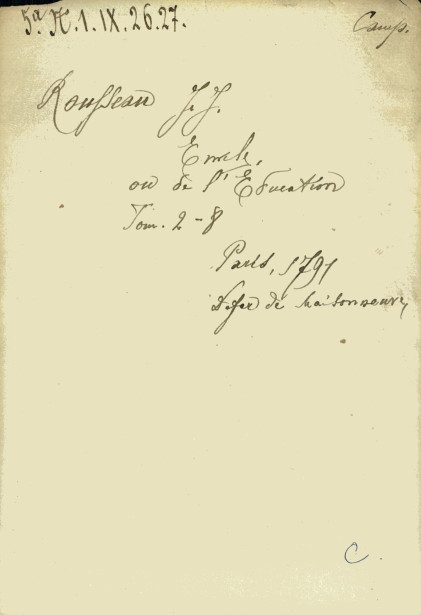 5ª H.1.IX.26.27.
Camp.
Rousseau J. J.
Emile,
ou de l'Education
Tom. 2-8
Paris, 1791
Defer de Maisonneuve,
C.